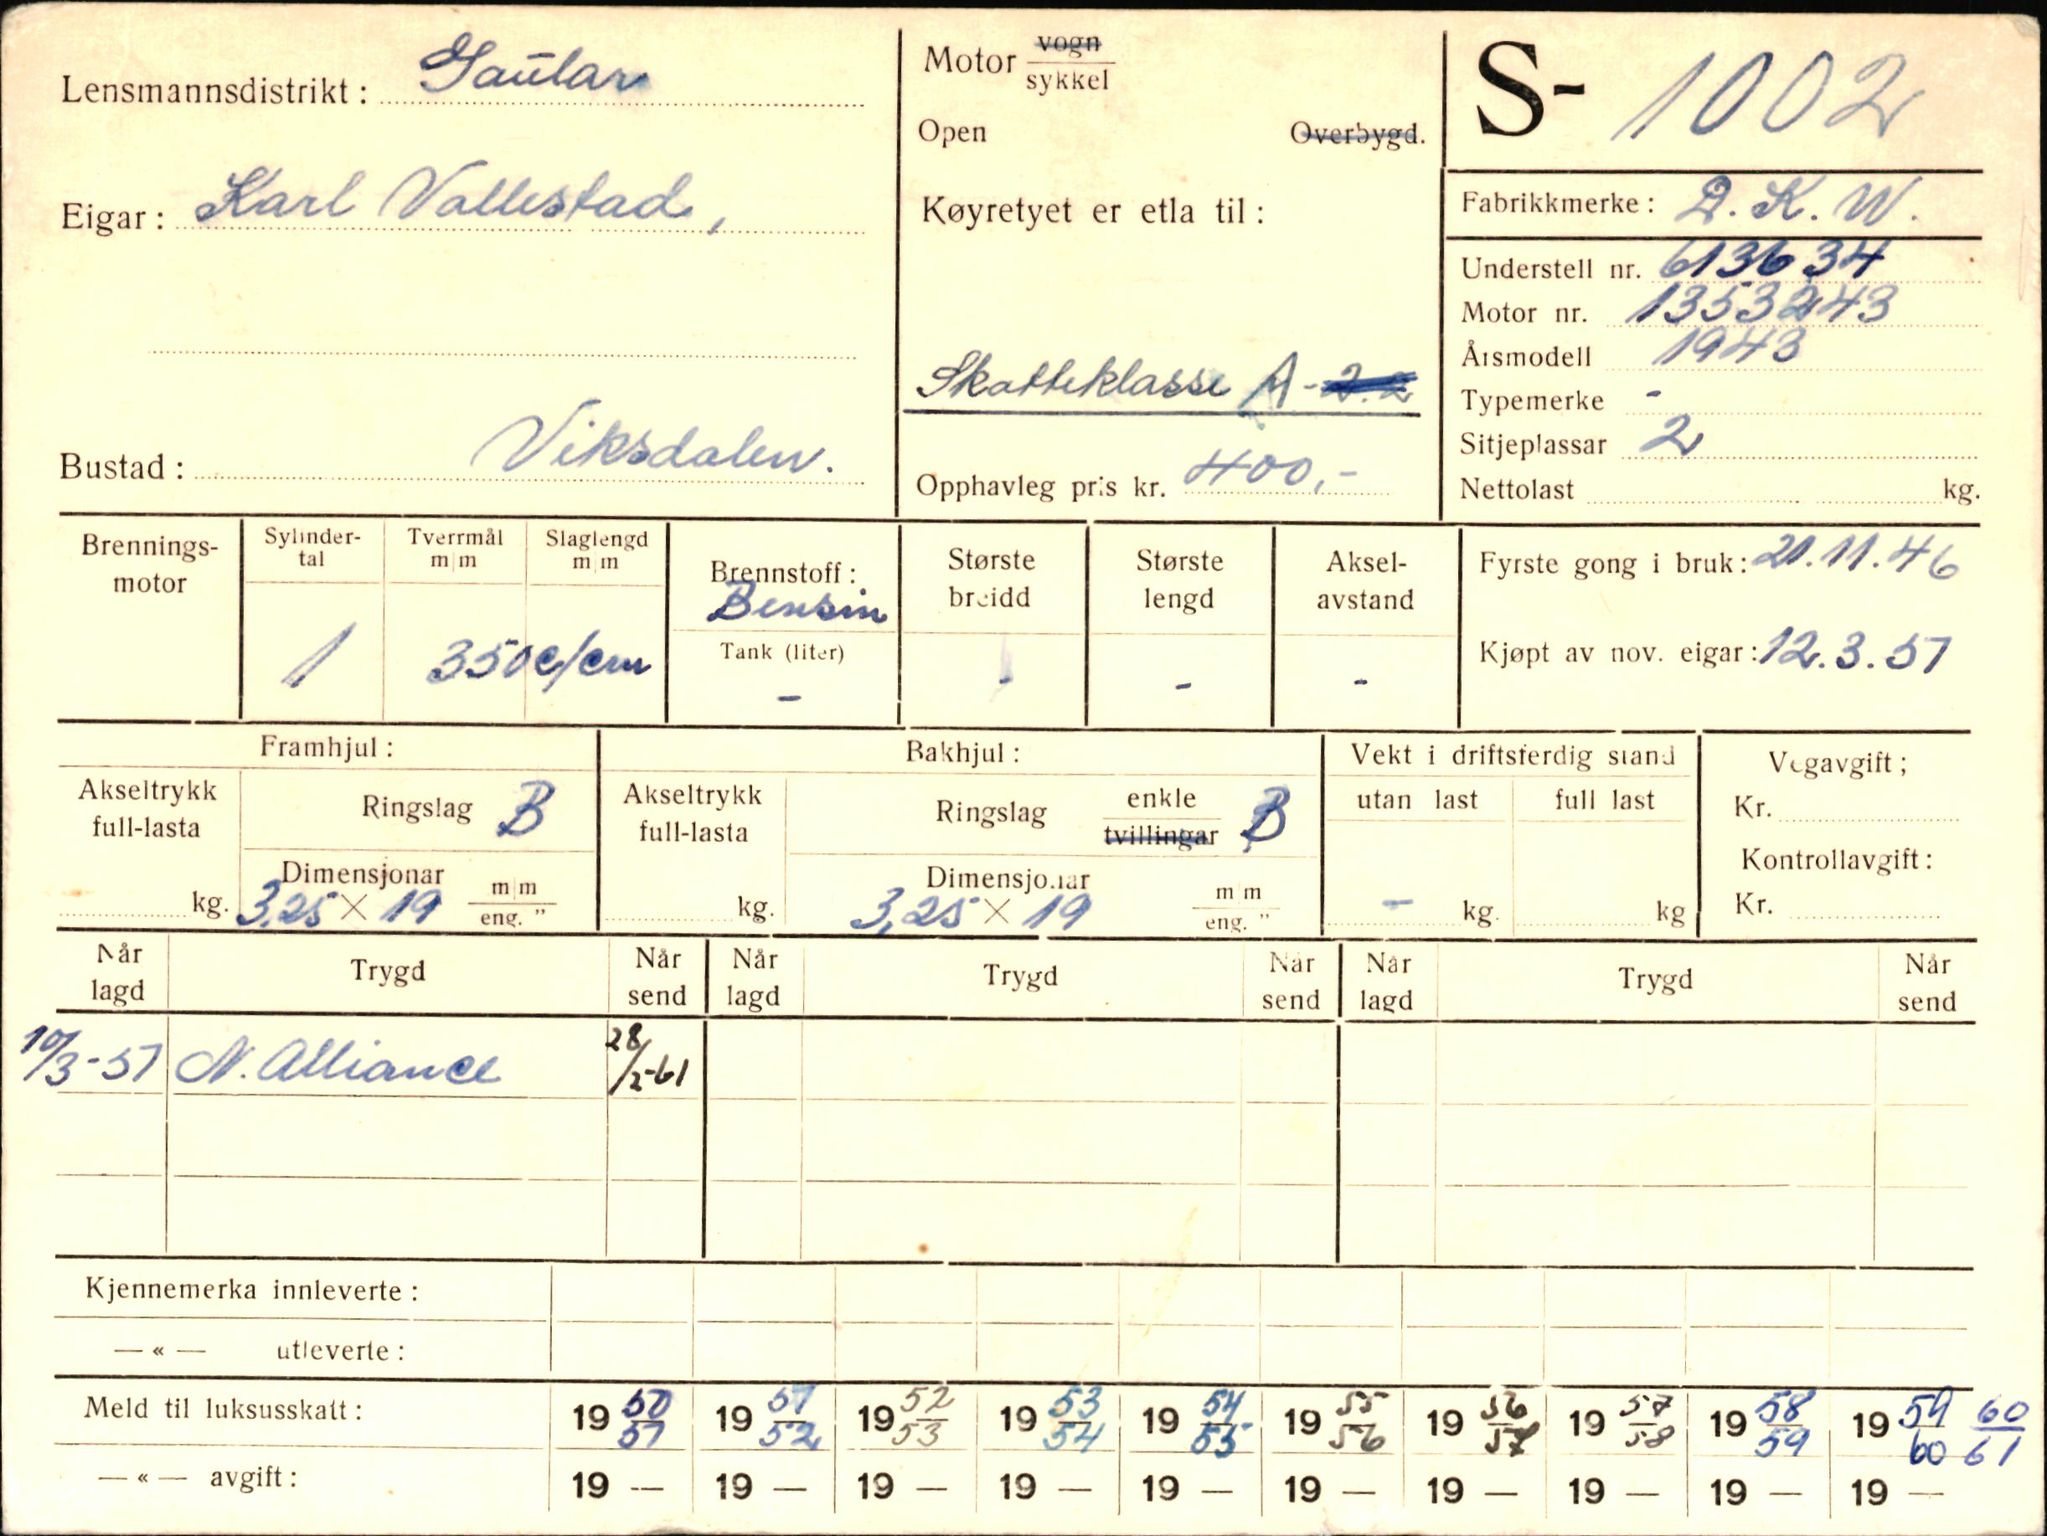 Lensmannsdistrikt: Gaular
Eigar: Karl Vallestad,
Bustad: Viksdalen.
Motor vogn
sykkel
Open Overbygd.
Køyretyet er etla til:
Skatteklasse A-2.2
Opphavleg pris kr. 400,-
S- 1002
Fabrikkmerke: D.K.W.
Understell nr. 613634
Motor nr. 1353243
Årsmodell 1943
Typemerke -
Sitjeplassar 2
Nettolast kg.
Brennings-
motor
Sylinder-
tal
1
Tverrmål
m|m
Slaglengd
m|m
350 c/cm
Brennstoff:
Bensin
Tank (liter)
-
Største
breidd
-
Største
lengd
-
Aksel-
avstand
-
Fyrste gong i bruk: 21.11.46
Kjøpt av nov. eigar: 12.3.51
Framhjul:
Akseltrykk
full-lasta
kg.
Ringslag B
Dimensjonar
3,25 X 19 m|m
eng. "
Bakhjul:
Akseltrykk
full-lasta
kg.
Ringslag enkle
tvillingar B
Dimensjonar
3,25 X 19 m|m
eng. "
Vekt i driftsferdig stand
utan last full last
- kg. kg
Vegavgift;
Kr.
Kontrollavgift:
Kr.
Når
lagd
Trygd
Når
send
Når
lagd
Trygd
Når
send
Når
lagd
Trygd
Når
send
10/3-51 N. Alliance 28/2-61
Kjennemerka innleverte:
— « — utleverte:
Meld til luksusskatt: 19 50/51 19 51/52 19 52/53 19 53/54 19 54/55 19 55/56 19 56/57 19 57/58 19 58/59 19 59/60 60/61
— « — avgift: 19 — 19 — 19 — 19 — 19 — 19 — 19 — 19 — 19 — 19 —